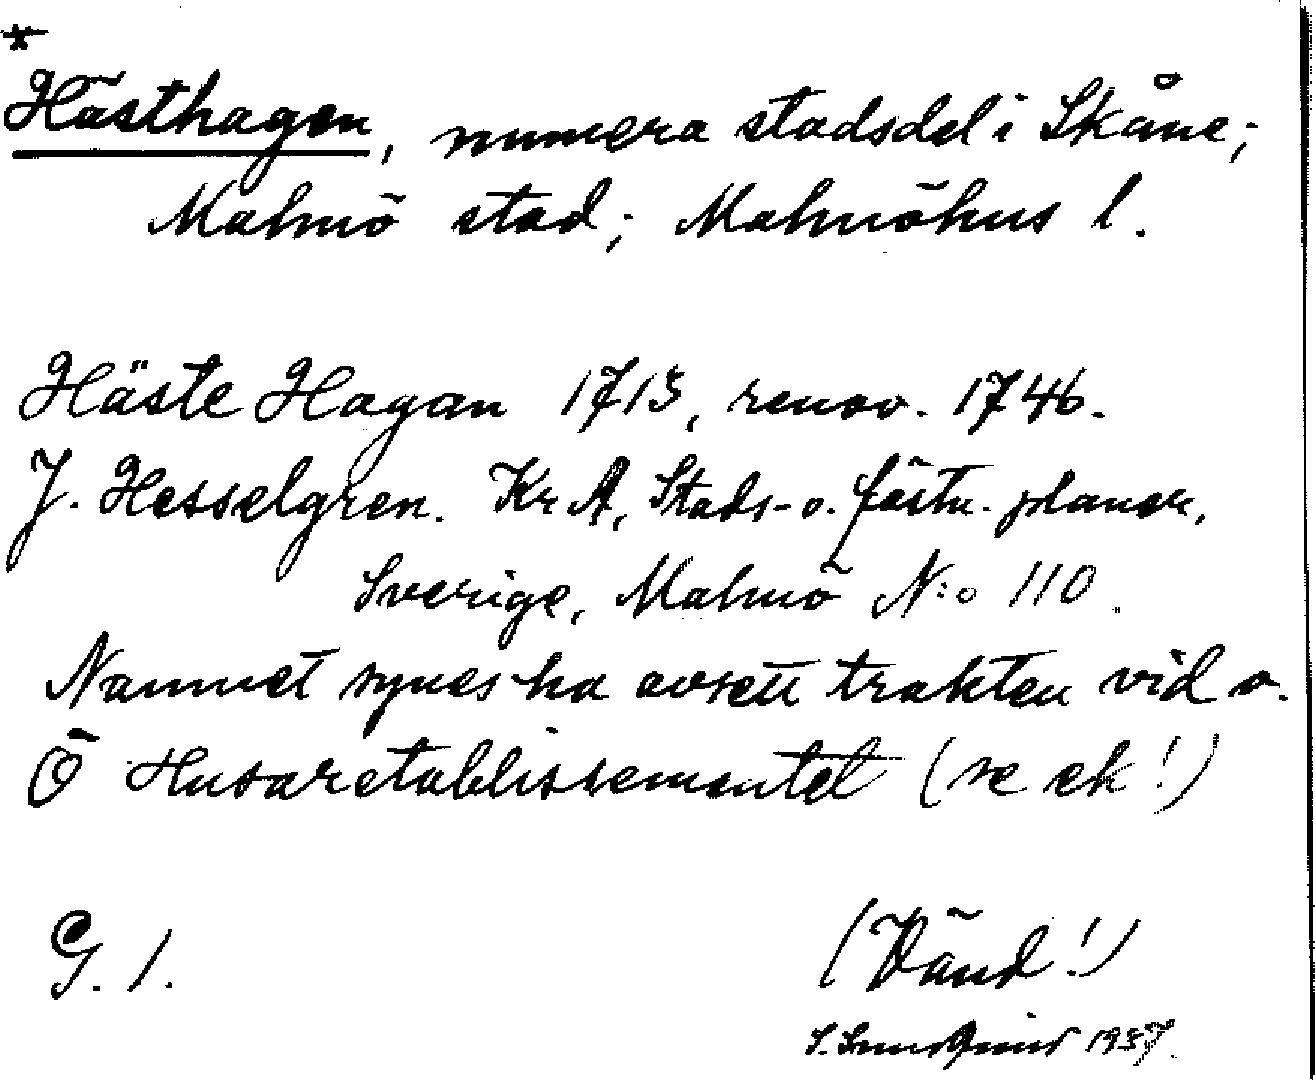 *
Hästhagen, numera stadsdel i Skåne;
Malmö stad; Malmöhus l.
Häste Hagan 1713, renov. 1746.
J. Hesselgren. KrA, Stads- o. fästn. planer,
Sverige, Malmö N:o 110.
Namnet synes ha avsett trakten vid o.
Ö Husaretablissementet (se ek!)
G. 1.
(Vänd!)
S. 1937.